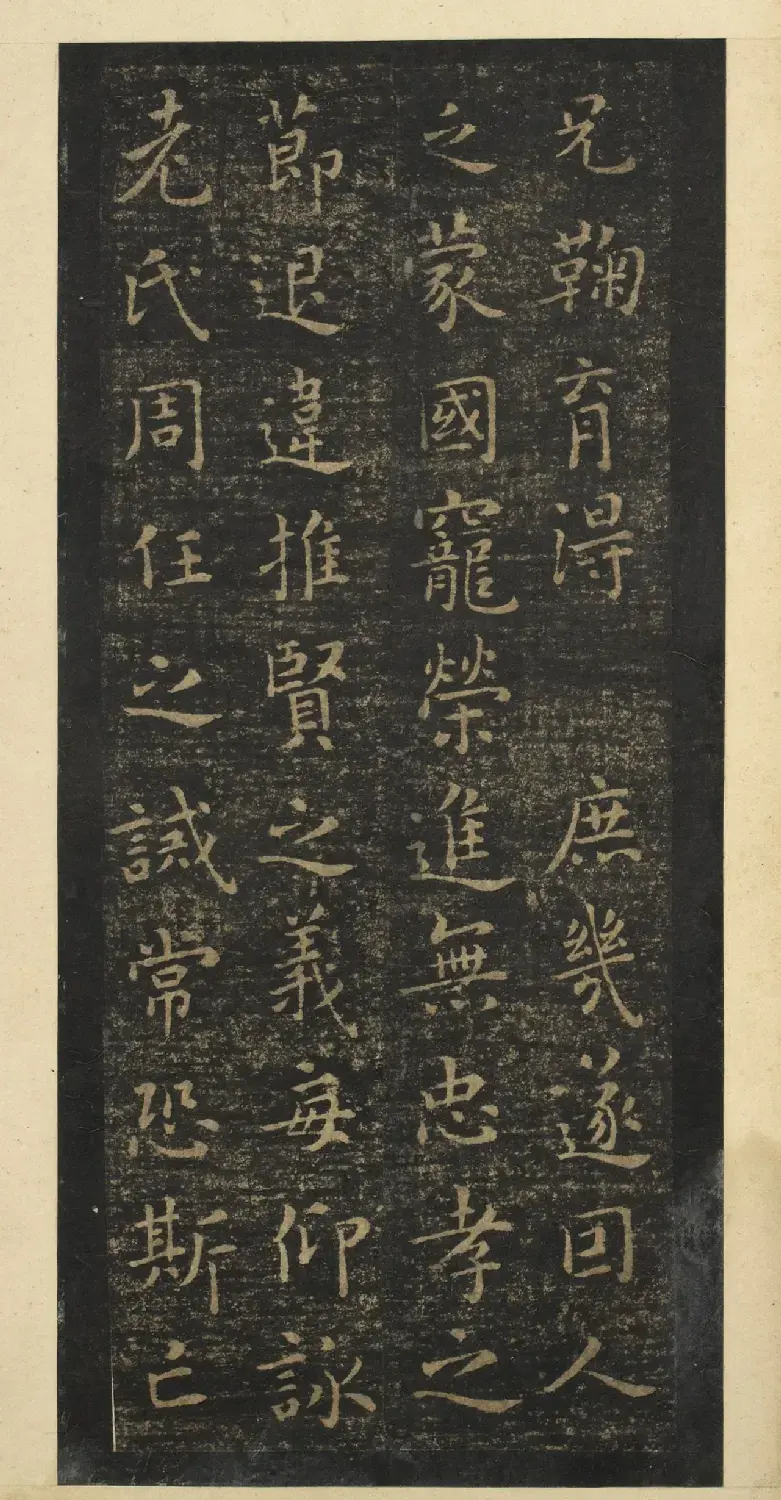 兄鞠育得 庶幾遂因人
之蒙國寵榮進無忠孝之
節退違推賢之義每仰詠
老氏周任之誡常恐斯亡